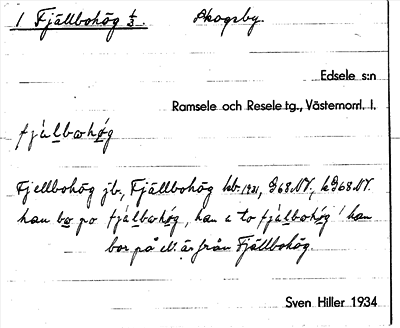 1 Fjällbohög 1/3. Skogsby.
Edsele s:n
Ramsele och Resele tg., Västernorrl. l.
fjä́lbωhǿg
Fjellbohög jb., Fjällbohög kbr 1921, G68NV, kG68NV.
han bo po fjälbωhøg, han e to fjälbωhøg! han
bor på el. är från Fjällbohög.
Sven Hiller 1934